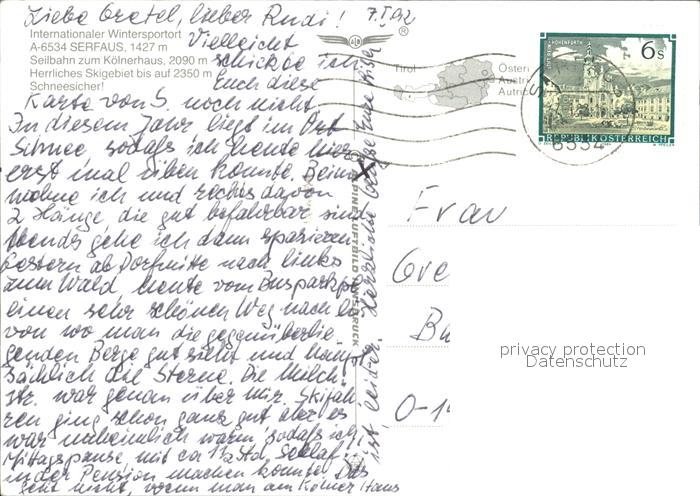 Liebe Gretel, lieber Rudi! 7.I.92
Internationaler Wintersportort
A-6534 SERFAUS, 1427 m
Seilbahn zum Kölnerhaus, 2090 m
Herrliches Skigebiet bis auf 2350 m
Schneesicher!
Vielleicht
schickte ich
Euch diese
Karte von S. noch nicht
In diesem Jahr liegt im Ort
Schnee, sodaß ich heute hier
erst mal üben konnte. Beim
wohne ich und rechts davon
2 Hänge die gut befahrbar sind
Abends gehe ich dann spazieren
Gestern ab Dorfmitte nach links
zum Wald, heute vom Busparkpl
einen sehr schönen Weg nach
von wo man die gegenüberlie-
genden Berge gut sieht und haupt-
sächlich die Sterne. Die Milch-
str. war genau über mir. Skifah-
ren ging schon ganz gut aber es
war unheimlich warm, sodaß ich
Mittagspause mit ca 1½ Std. Schlaf
in der Pension machen konnte. Das
geht nicht, wenn man am Kölner Haus
ist leider. Herzliche Grüße Eure
ALPINE LUFTBILD INNSBRUCK
®
Tirol
Österreich
Austria
Autriche
STIFT
6 s
REPUBLIK ÖSTERREICH
6534
Frau
Gre
Ba
O-1
privacy protection
Datenschutz